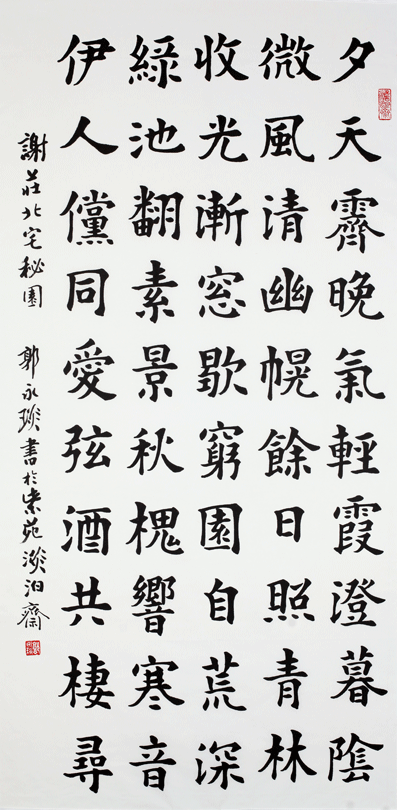 夕天霽晚氣輕霞澄暮陰
微風清幽幌餘日照青林
收光漸窓歇窮園自荒深
綠池翻素景秋槐響寒音
伊人儻同愛弦酒共棲尋
謝莊北宅秘園 郭永琰書於紫苑淡泊齋